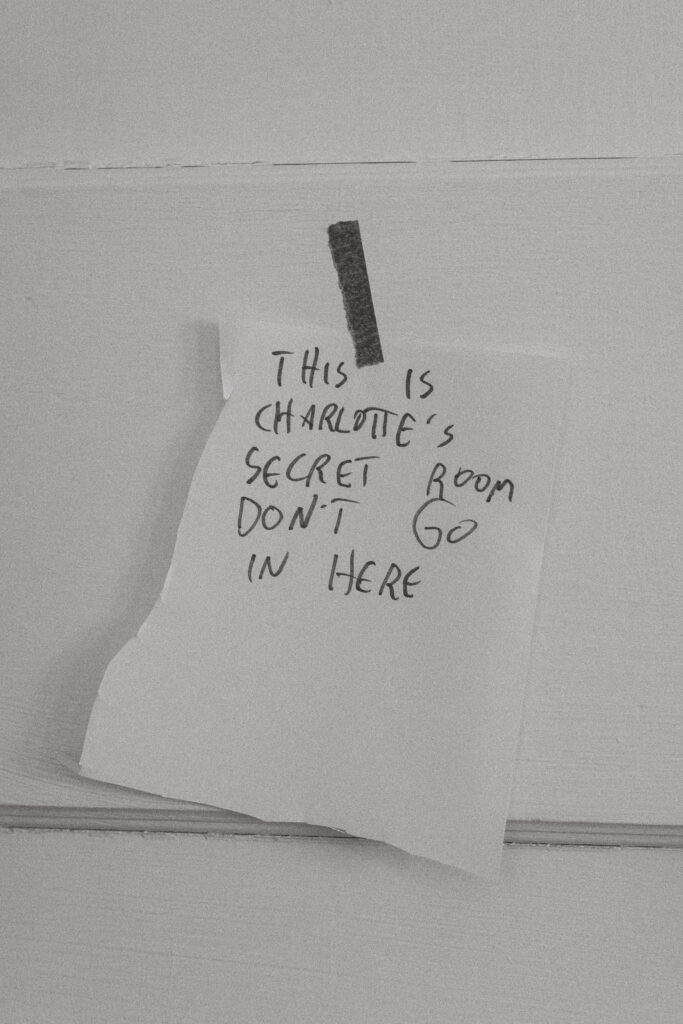 THIS IS
CHARLOTTE'S
SECRET ROOM
DON'T GO
IN HERE